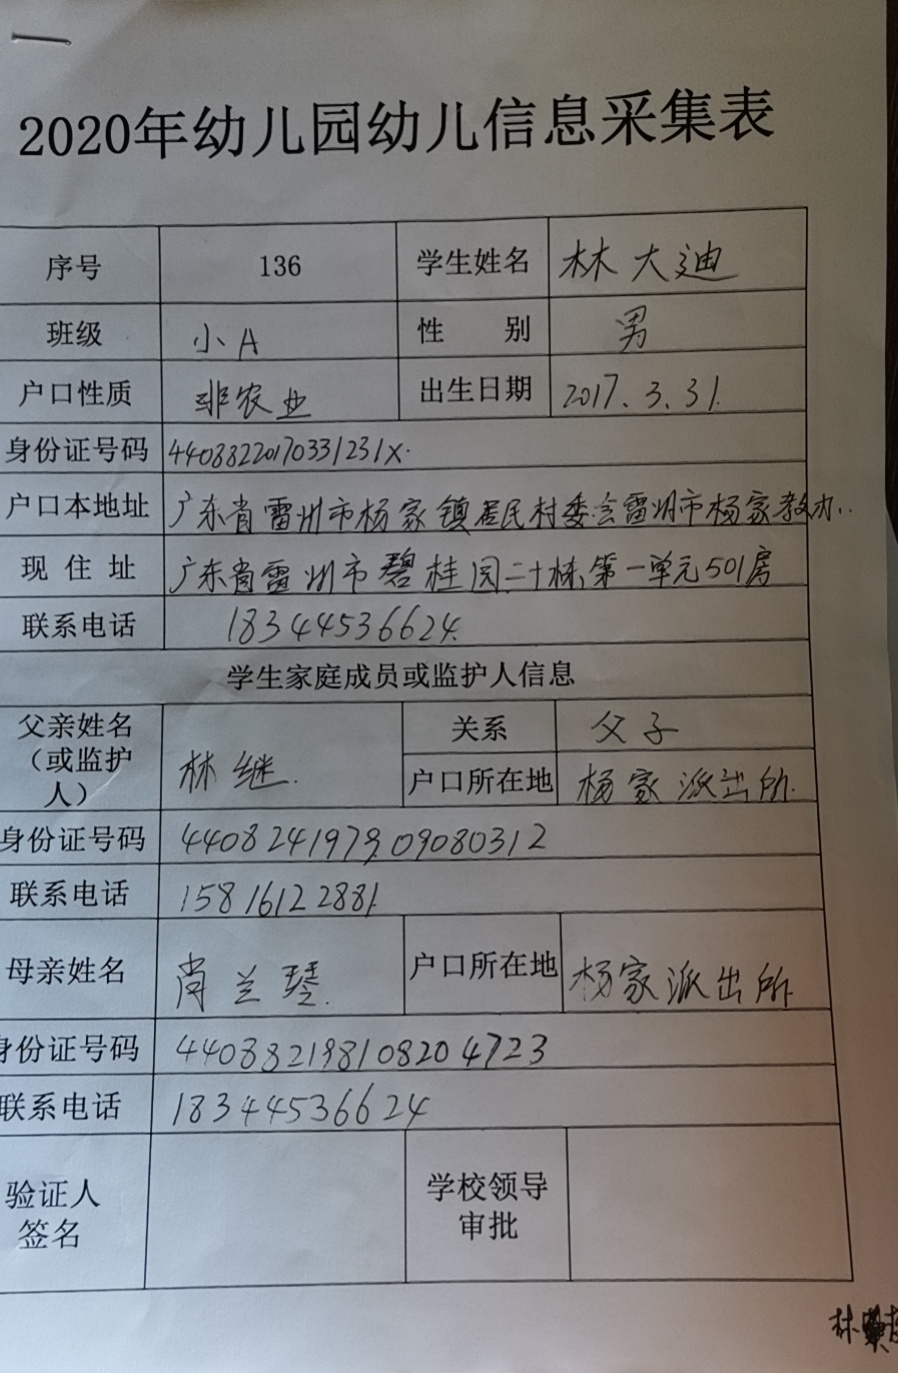 2020年幼儿园幼儿信息采集表
序号 136 学生姓名 林大迪
班级 小A 性 别 男
户口性质 非农业 出生日期 2017.3.31.
身份证号码 44088220170331231X.
户口本地址 广东省雷州市杨家镇居民村委会雷州市杨家教办..
现 住 址 广东省雷州市碧桂园二十栋第一单元501房
联系电话 18344536624.
学生家庭成员或监护人信息
父亲姓名（或监护人） 林继. 关系 父子
户口所在地 杨家派出所.
身份证号码 440824197909080312
联系电话 15816122881
母亲姓名 肖兰琴. 户口所在地 杨家派出所
身份证号码 440882198108204723
联系电话 18344536624
验证人签名 学校领导审批
林